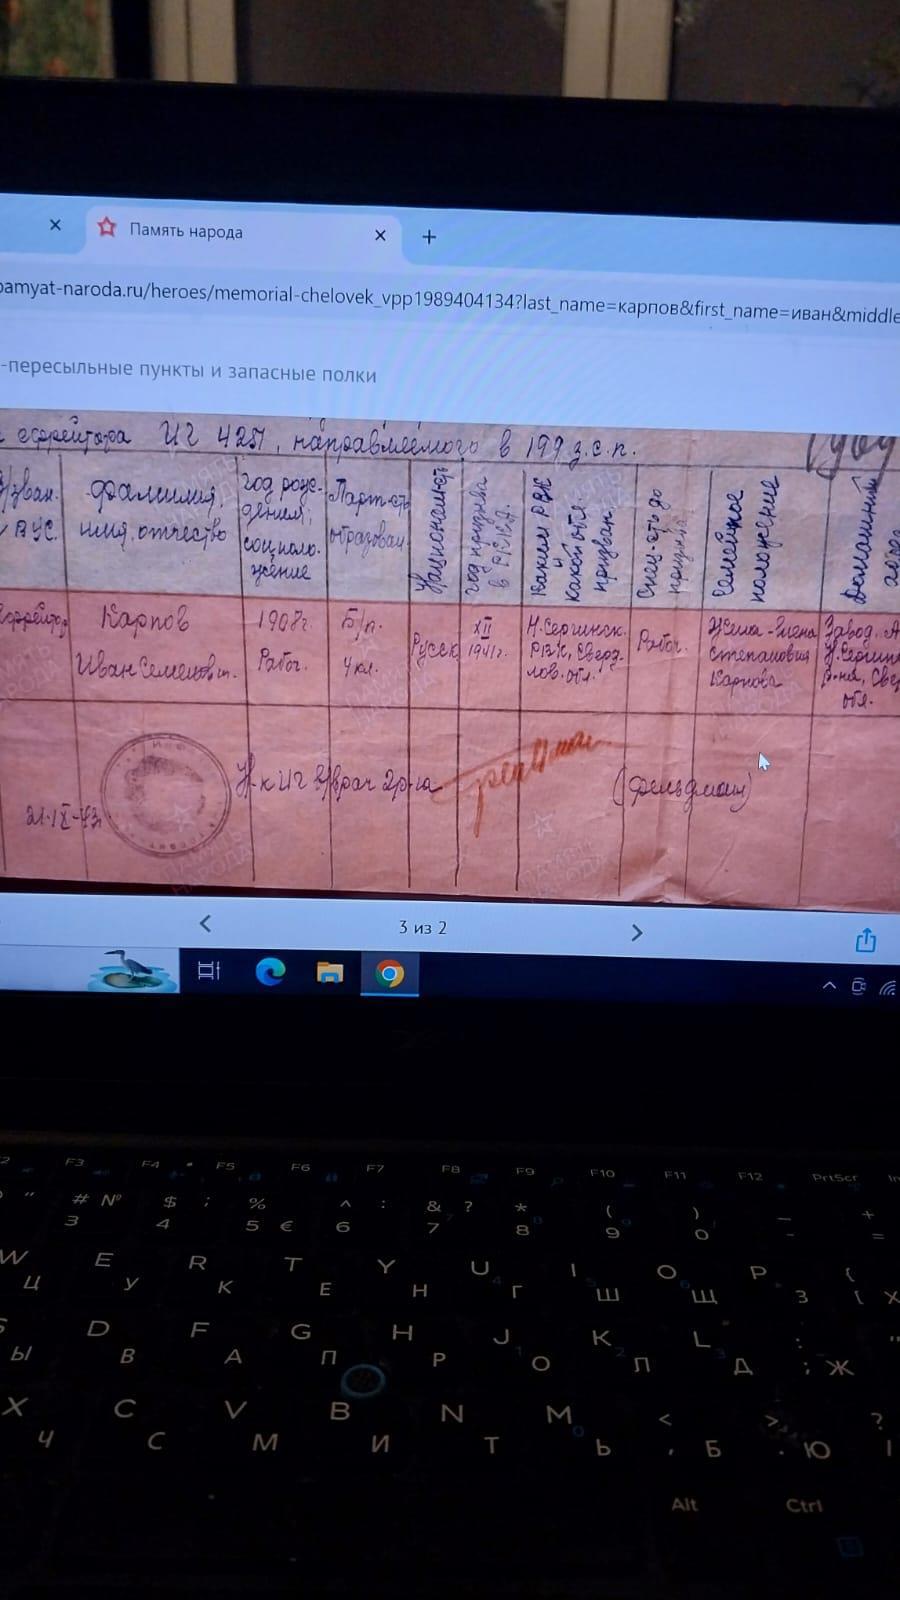 Память народа
pamyat-naroda.ru/heroes/memorial-chelovek_vpp1989404134?last_name=карпов&first_name=иван&middle
-пересыльные пункты и запасные полки
ефрейтора ИГ 4251, направляемого в 199 з.с.п.
зван. ВУС.
фамилия, имя, отчество
Год рождения, социаль. положение
Парт-сть образован.
Национальн-сть
год призыва в Р.К.К.А.
Каким РВК и какой обл. призван
Спец-сть до призыва
Семейное положение
Домашний адрес
Ефрейтор
Карпов
Иван Семенович.
1908г.
Рабоч.
Б/п.
4 кл.
Русск
XII
1941г.
Н. Сергинск.
РВК, Сверд-
лов. обл.
Рабоч.
Жена - Елена
Степановна
Карпова
Завод. А
Н. Сергин
р-на, Све
обл.
Н-к ИГ в/врач 2р-га
(Фельдман)
21.IX-43
ПАМЯТЬ НАРОДА
3 из 2
F3 F4 F5 F6 F7 F8 F9 F10 F11 F12 PrtScr In
" # № $ ; % ^ : & ? * ( ) _ +
3 4 5 € 6 7 8 9 0 - =
W E R T Y U I O P {
Ц У К Е Н Г Ш Щ З [ Х
S D F G H J K L : "
Ы В А П Р О Л Д ; Ж
X C V B N M < > ?
Ч С М И Т Ь , Б . Ю
Alt Ctrl